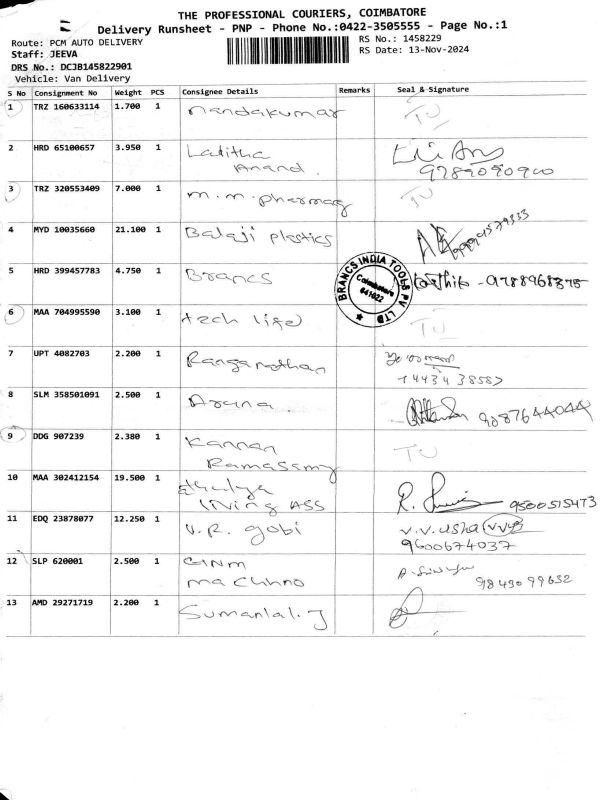 THE PROFESSIONAL COURIERS, COIMBATORE
Delivery Runsheet - PNP - Phone No.:0422-3505555 - Page No.:1
Route: PCM AUTO DELIVERY
RS No.: 1458229
Staff: JEEVA
RS Date: 13-Nov-2024
DRS No.: DCJB145822901
Vehicle: Van Delivery
S No Consignment No Weight PCS Consignee Details Remarks Seal & Signature
1 TRZ 160633114 1.700 1 Nandakumar TU
2 HRD 65100657 3.950 1 Lalitha
Anand.
9789090900
3 TRZ 320553409 7.000 1 m.m.pharmacy TU
4 MYD 10035660 21.100 1 Balaji plastics
5 HRD 399457783 4.750 1 Brancs
BRANCS INDIA TOOLS PVT LTD
Coimbatore
641022
9788968375
6 MAA 704995590 3.100 1 tech life TU
7 UPT 4082703 2.200 1 Ranganathan
8 SLM 358501091 2.500 1 Aruna.
9087644044
9 DDG 907239 2.380 1 Kannan TU
Ramasamy
10 MAA 302412154 19.500 1
living ASS
9500515473
11 EDQ 23878077 12.250 1 V.R. gobi V.V.Usha
9600674037
12 SLP 620001 2.500 1 GINM
9843099632
13 AMD 29271719 2.200 1 Sumanlal.J